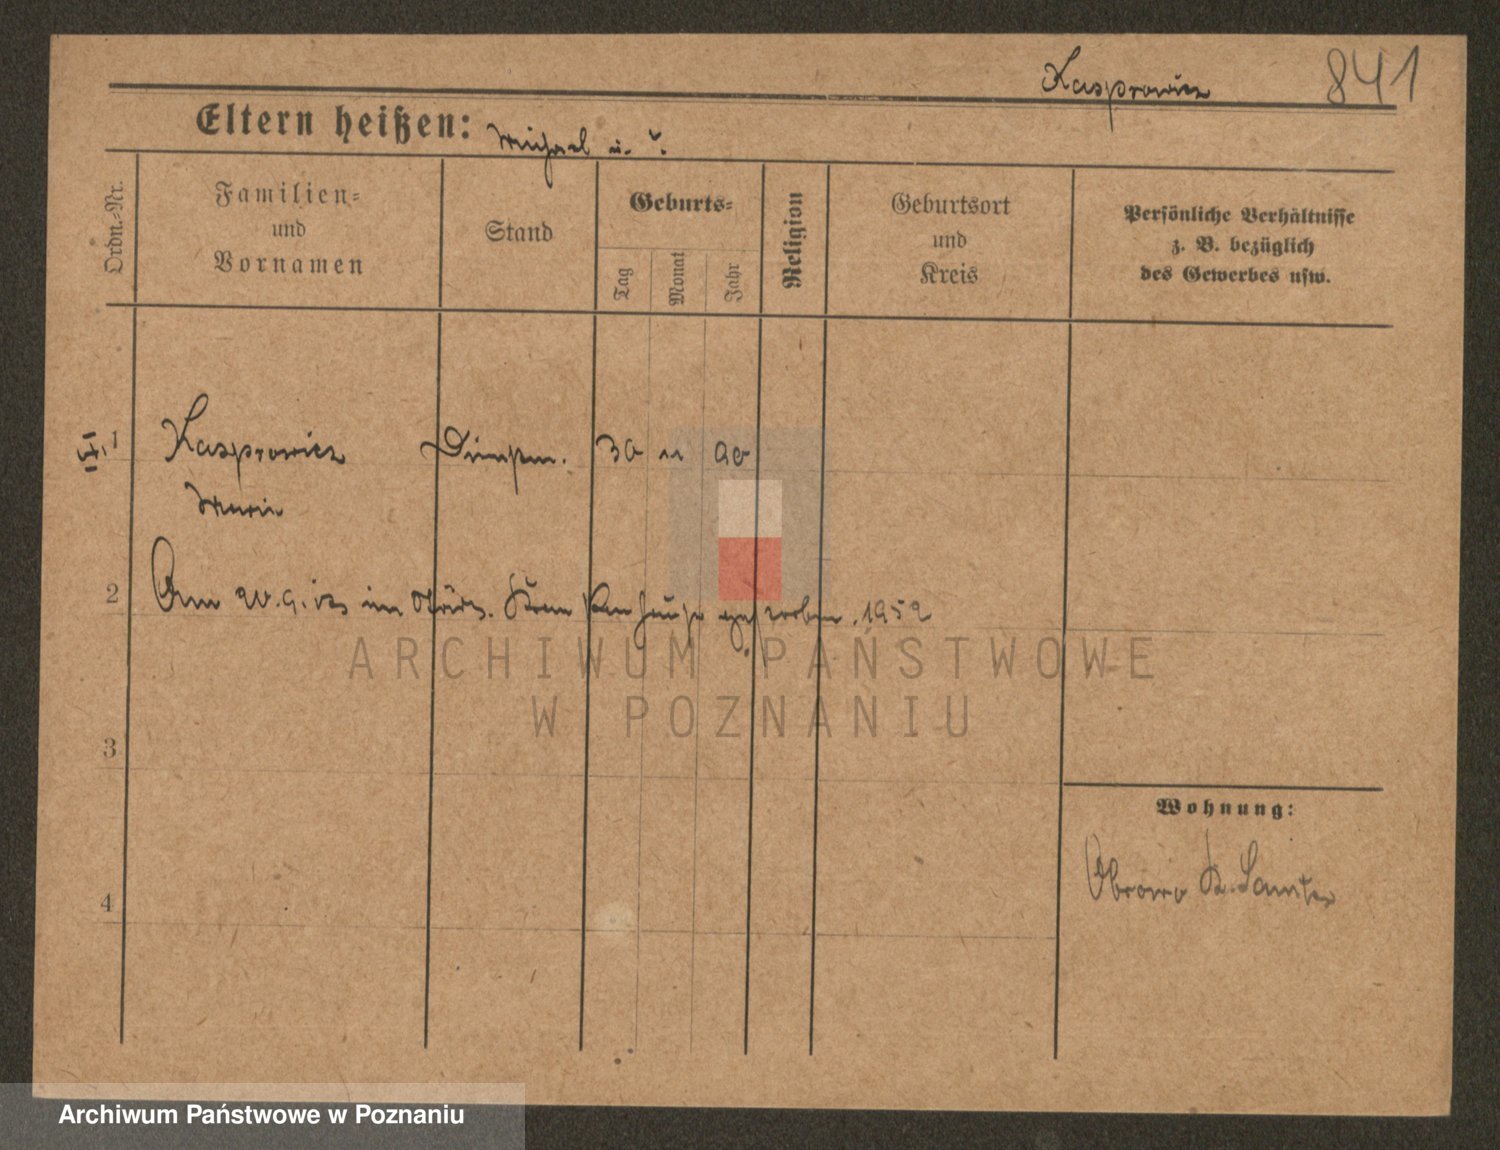 Kasprowicz 841
Eltern heißen: Michael u. ?.
Ordn.-Nr.
Familien-
und
Vornamen
Stand
Geburts-
Tag
Monat
Jahr
Religion
Geburtsort
und
Kreis
Persönliche Verhältnisse
z. B. bezüglich
des Gewerbes usw.
1 Kasprowicz 30 11 90
Marie
2 Am 20.9. im Städt. Krankenhause gestorben. 1952
ARCHIWUM PAŃSTWOWE
W POZNANIU
3
Wohnung:
Obrowo K. Samter
4
Archiwum Państwowe w Poznaniu